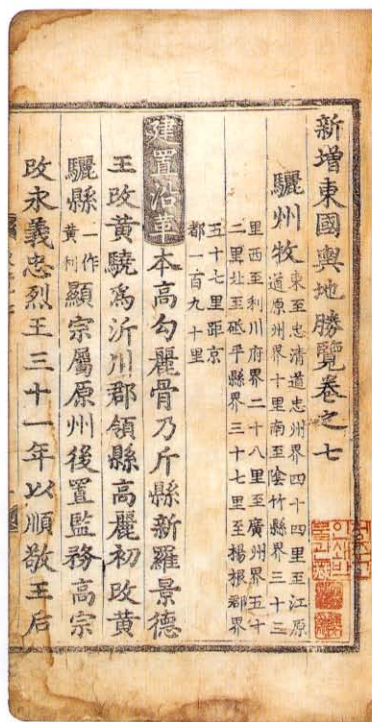 新增東國輿地勝覽卷之七
驪州牧
東至忠清道忠州界四十四里至江原
道原州界十里南至陰竹縣界三十三
里西至利川府界二十八里至廣州界五十
二里北至砥平縣界三十七里至楊根郡界
五十七里距京
都一百九十里
建置沿革 本高勾麗骨乃斤縣新羅景德
王改黃驍爲沂川郡領縣高麗初改黃
驪縣一作黃利顯宗屬原州後置監務高宗
改永義忠烈王三十一年以順敬王后